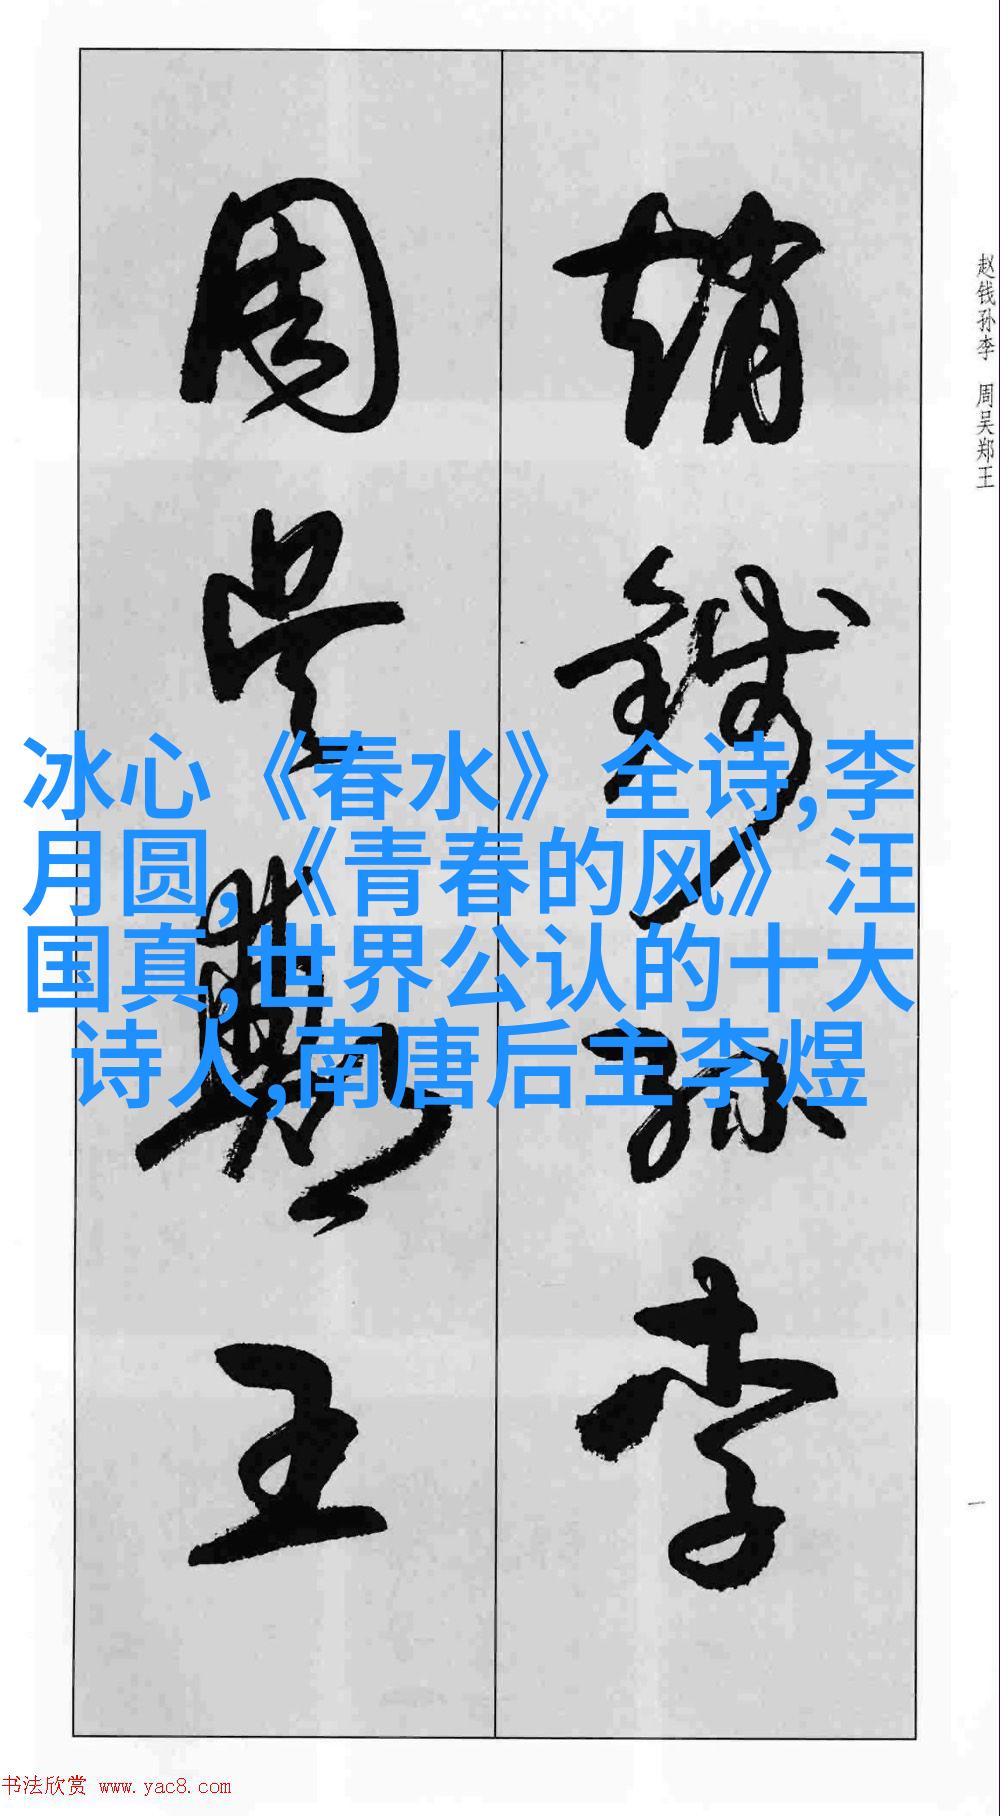 趙錢孫李
周吳鄭王
赵钱孙李 周吴郑王
冰心《春水》全诗,李
月圆,《青春的风》汪
国真,世界公认的十大
诗人,南唐后主李煜
一
书法欣赏 www.yac8.com